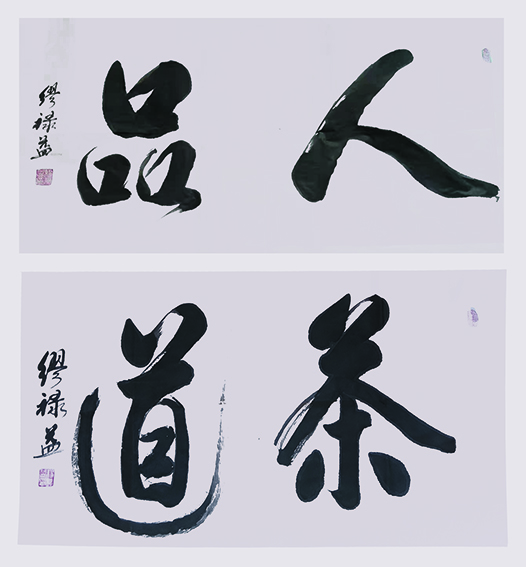 人品
缪禄益
茶道
缪禄益